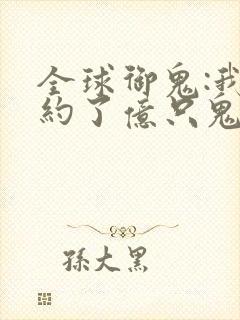 全球御鬼:我
約了億只鬼
孫大黑